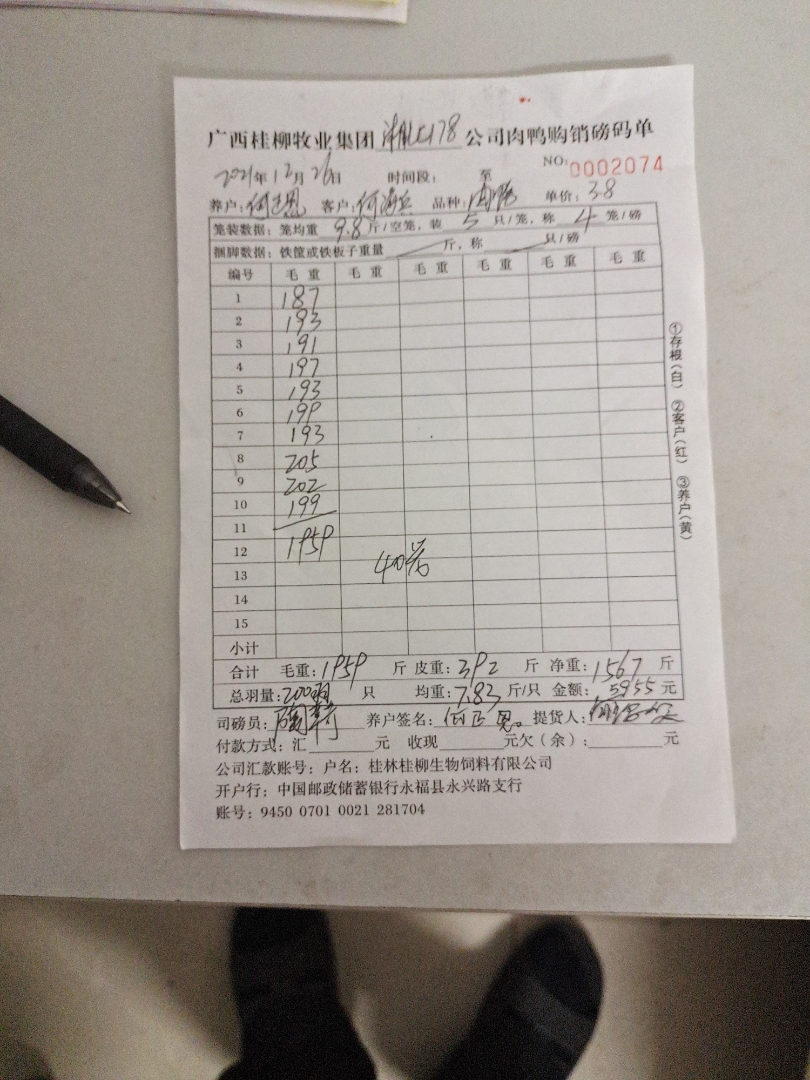 广西桂柳牧业集团 公司肉鸭购销磅码单
2021年12月26日 时间段: 至 NO: 0002074
养户: 客户:何海兵 品种: 单价:3.8
笼装数据: 笼均重 9.8 斤/空笼, 装 5 只/笼, 称 4 笼/磅
捆脚数据: 铁筐或铁板子重量 斤, 称 只/磅
编号 毛重 毛重 毛重 毛重 毛重 毛重
1 187
2 193
3 191
4 197
5 193
6 199
7 193
8 205
9 202
10 199
11
12 1959
13 40
14
15
小计
合计 毛重:1959 斤 皮重:392 斤 净重:1567 斤
总羽量:200羽 只 均重:7.83 斤/只 金额:5955 元
司磅员: 养户签名: 提货人:
付款方式: 汇 元 收现 元欠(余): 元
公司汇款账号: 户名: 桂林桂柳生物饲料有限公司
开户行: 中国邮政储蓄银行永福县永兴路支行
账号: 9450 0701 0021 281704
①存根(白) ②客户(红) ③养户(黄)